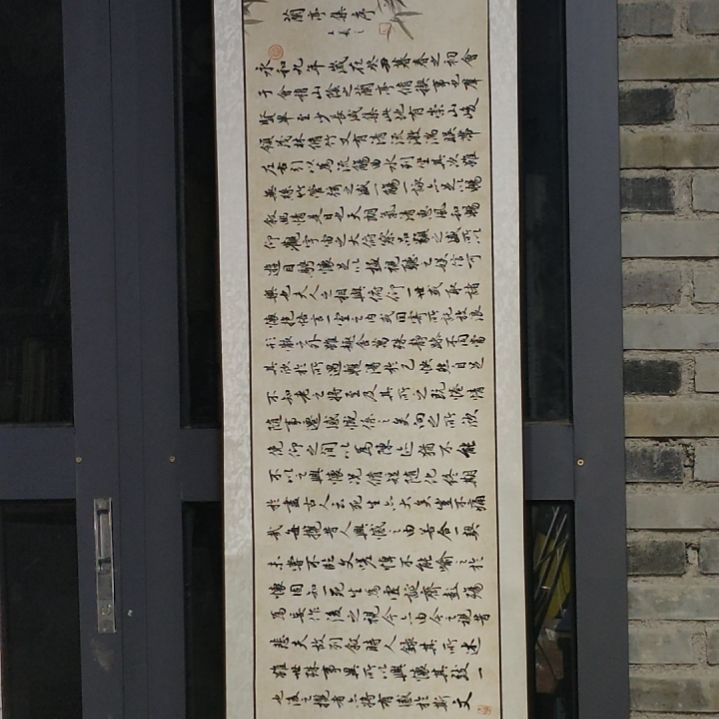 蘭亭集序
王羲之
永和九年歲在癸丑暮春之初會
于會稽山陰之蘭亭脩禊事也羣
賢畢至少長咸集此地有崇山峻
領茂林脩竹又有清流激湍暎帶
左右引以為流觴曲水列坐其次雖
無絲竹管絃之盛一觴一詠亦足以暢
敘幽情是日也天朗氣清惠風和暢
仰觀宇宙之大俯察品類之盛所以
遊目騁懷足以極視聽之娛信可
樂也夫人之相與俯仰一世或取諸
懷抱悟言一室之內或因寄所託放浪
形骸之外雖趣舍萬殊靜躁不同當
其欣於所遇輒得於己怏然自足
不知老之將至及其所之既惓情
隨事遷感慨係之矣向之所欣
俛仰之間以為陳迹猶不能
不以之興懷況脩短隨化終期
於盡古人云死生亦大矣豈不痛
哉每攬昔人興感之由若合一契
未嘗不臨文嗟悼不能喻之於
懷固知一死生為虛誕齊彭殤
為妄作後之視今亦由今之視昔
悲夫故列敘時人錄其所述
雖世殊事異所以興懷其致一
也後之攬者亦將有感於斯文